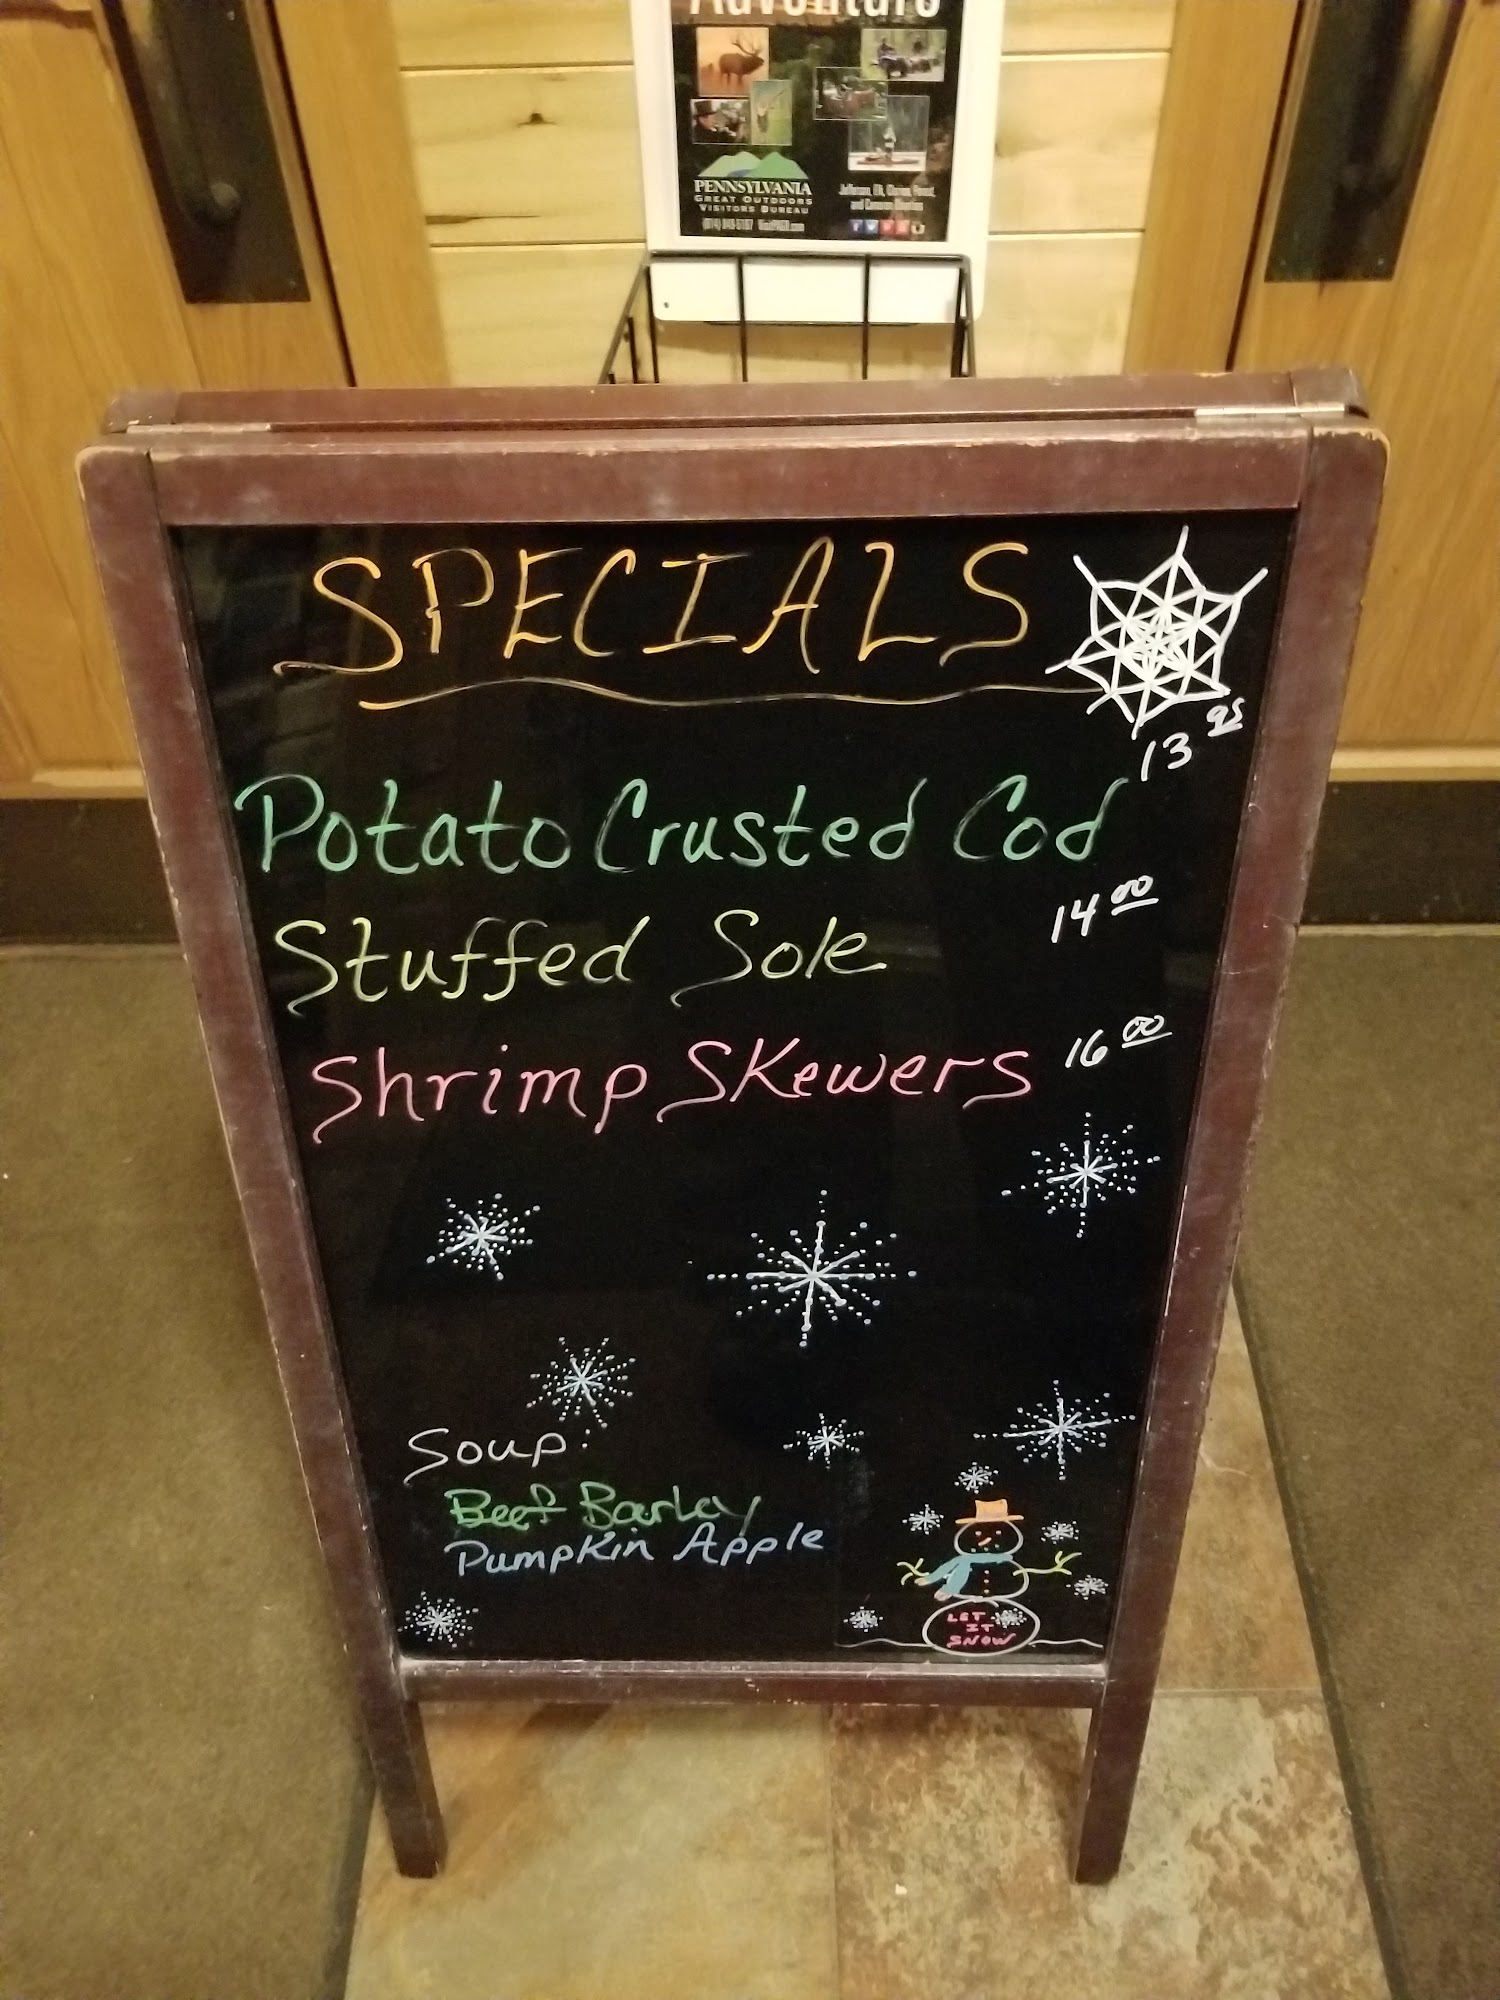 Adventure
PENNSYLVANIA
GREAT OUTDOORS
VISITORS BUREAU
Jefferson, Elk, Clarion, Forest,
and Cameron Counties
VisitPAGO.com
SPECIALS
13 95
Potato Crusted Cod
14 00
Stuffed Sole
16 00
Shrimp Skewers
Soup:
Beef Barley
Pumpkin Apple
LET
IT
SNOW